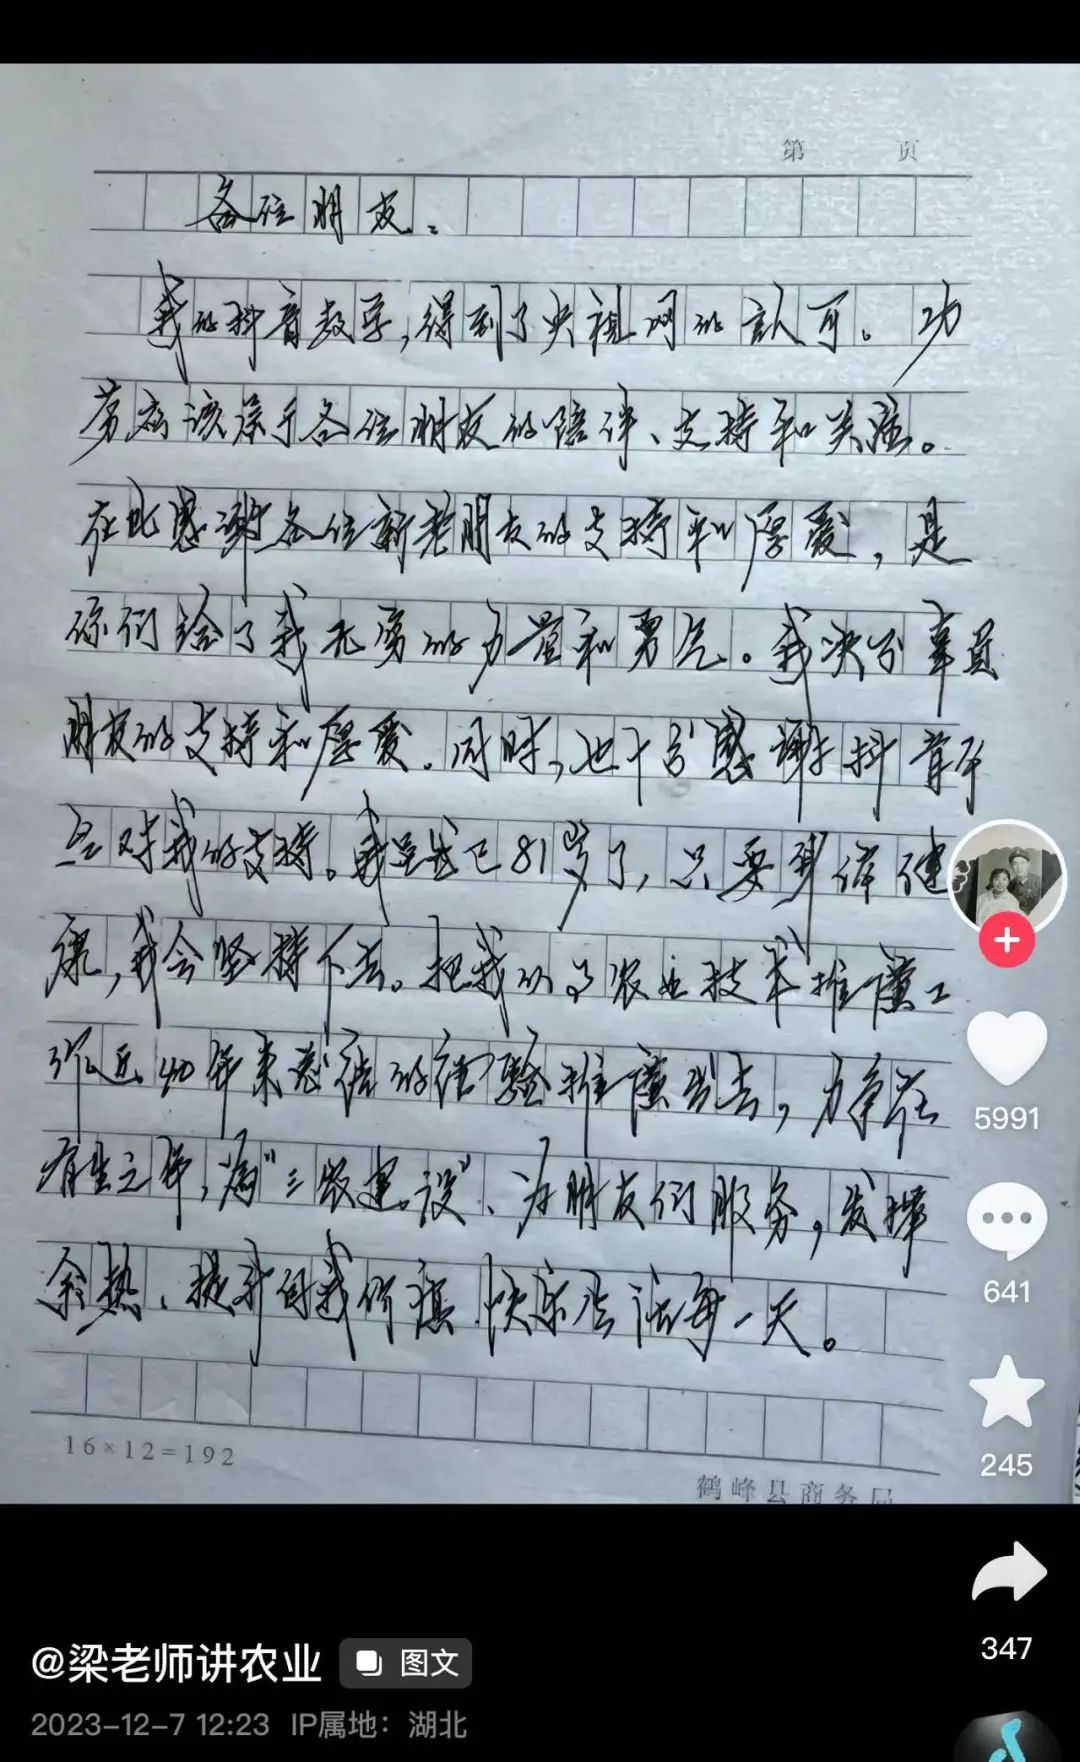 第 页
各位朋友:
我的抖音教学,得到了央视网的認可。功
劳应该归于各位朋友的陪伴、支持和关注。
在此感谢各位新老朋友的支持和厚爱,是
你们给了我无穷的力量和勇气。我决不辜负
朋友的支持和厚爱.同时,也十分感谢抖音平
台对我的支持。我虽然已81岁了,只要身体健
康,我会坚持下去。把我从事农业技术推广工
作近40年来总结的经验推广出去,力争在
有生之年,为"三农建设"、为朋友们服务,发挥
余热、提升自我价值.快乐生活每一天。
16×12=192
鹤峰县商务局
5991
641
245
347
@梁老师讲农业 图文
2023-12-7 12:23 IP属地:湖北